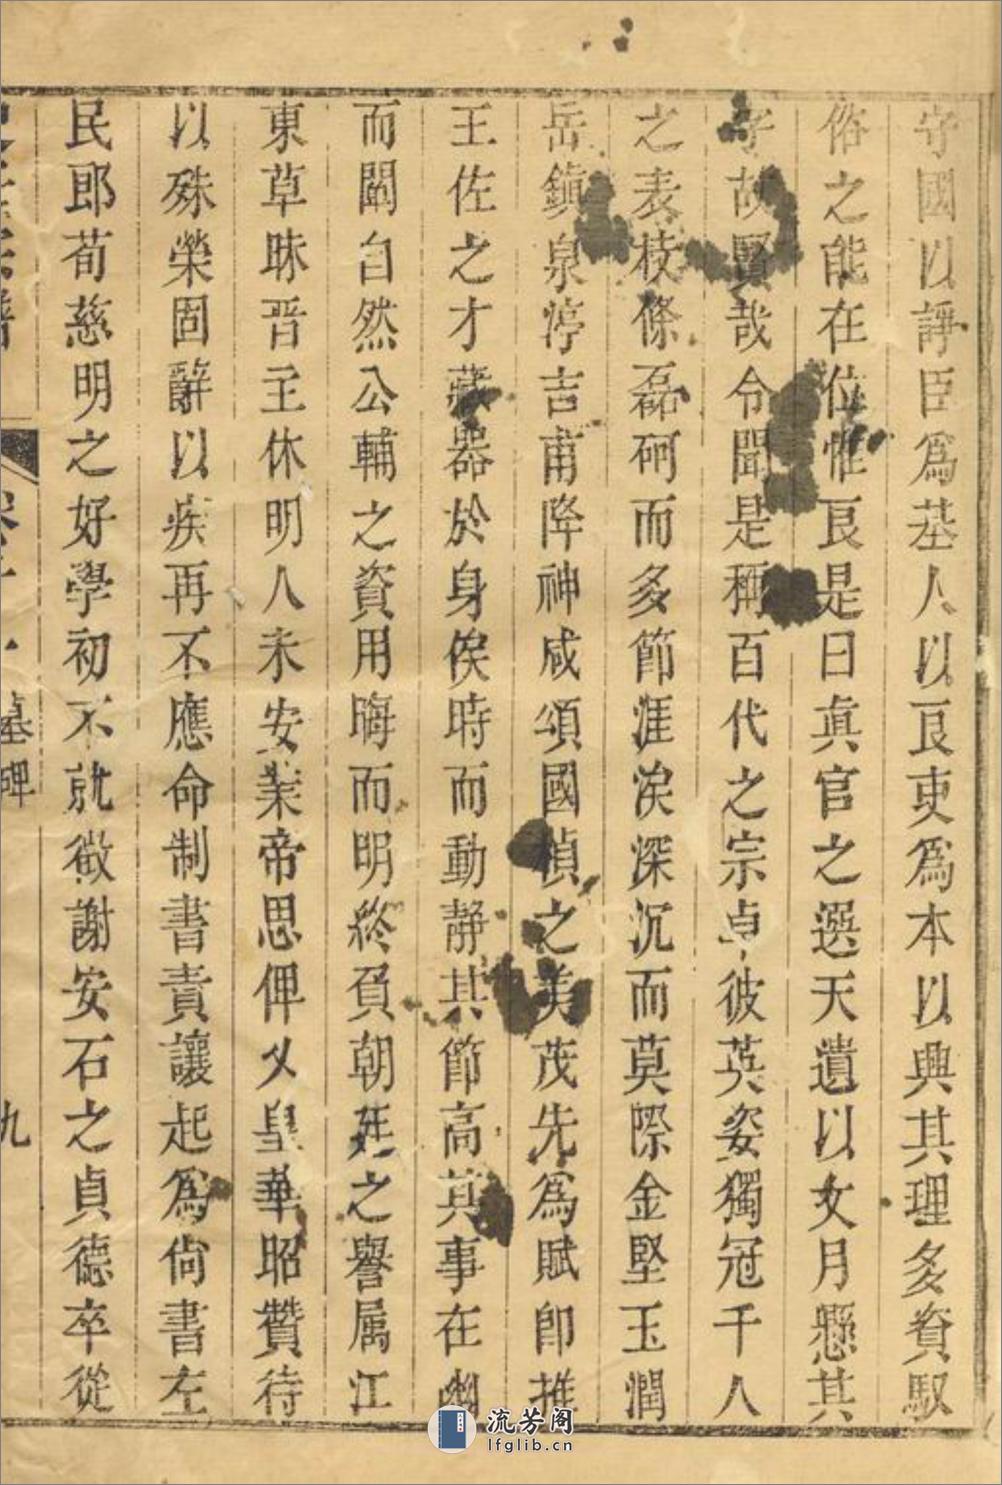 守國以諍臣爲基人以良吏爲本以興其理多資馭
俗之能在位惟良是曰眞官之選天遺以文月懸其
字故賢哉令聞是稱百代之宗卓彼英姿獨冠千人
之表枝條磊砢而多節涯涘深沉而莫際金堅玉潤
岳鎮泉渟吉甫降神咸頌國楨之美茂先爲賦卽推
王佐之才藏器於身俟時而動靜其節高其事在幽
而闇自然公輔之資用晦而明終負朝廷之譽属江
東草昧晋主休明人未安業帝思俾乂皇華昭贊待
以殊榮固辭以疾再不應命制書責讓起爲尙書左
民郎荀慈明之好學初不就徵謝安石之貞德卒從
譜
墓碑
九
流芳阁
lfglib.cn